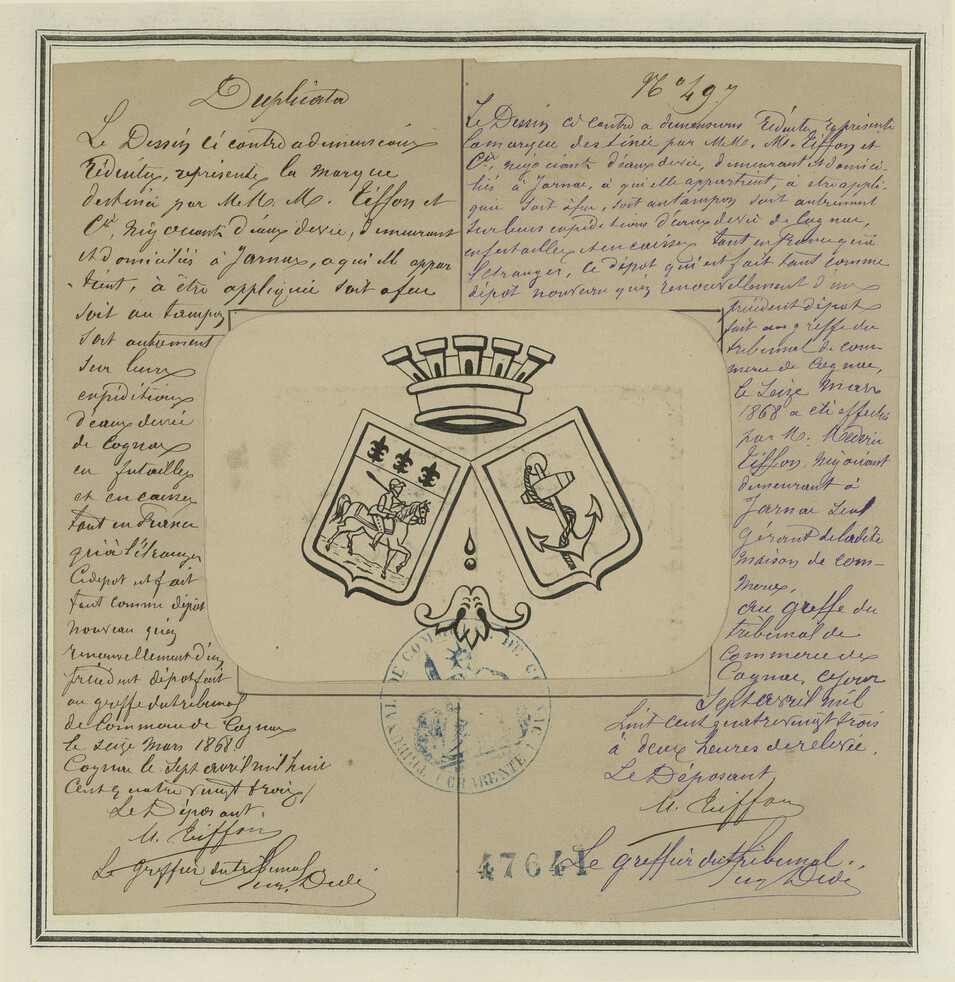 Duplicata
Le Dessin ci contre a dimensions
réduites, représente la marque
destinée par MM. M. Tiffon et
Cie, négociants d'eaux de vie, demeurant
et domiciliés à Jarnac, a qui elle appar
tient, à être appliquée soit a feu
soit au tampon
soit autrement
sur leurs
expéditions
d'eaux de vie
de Cognac
en futailles
et en caisses
tant en France
qu'à l'étranger
Ce dépot est fait
tant comme dépôt
nouveau qu'en
renouvellement d'un
précédent dépot fait
au greffe du tribunal
de Commerce de Cognac
le seize Mars 1868
Cognac le sept avril mil huit
cent quatre vingt trois
Le Déposant
M. Tiffon
Le greffier du tribunal
No 497
Le Dessin ci contre a dimensions réduites représente
la marque destinée par MM. M. Tiffon et
Cie, négociants d'eaux de vie, demeurant et domici-
liés à Jarnac, à qui elle appartient, à être appli-
quée soit à feu, soit au tampon soit autrement
sur leurs expéditions d'eaux de vie de Cognac,
en futailles et en caisses tant en France qu'à
l'étranger, ce dépôt qui est fait tant comme
dépôt nouveau qu'en renouvellement d'un
précédent dépôt
fait au greffe du
tribunal de com-
merce de Cognac,
le seize Mars
1868 a été effectué
par M. Médéric
Tiffon, négociant
demeurant à
Jarnac seul
gérant de la dite
maison de com-
merce,
au greffe du
tribunal de
commerce de
Cognac, ce jour
sept avril mil
huit cent quatre vingt trois
à deux heures de relevée.
Le Déposant
M. Tiffon
Le greffier du tribunal
TRIBUNAL DE COMMERCE DE COGNAC
CHARENTE
47641